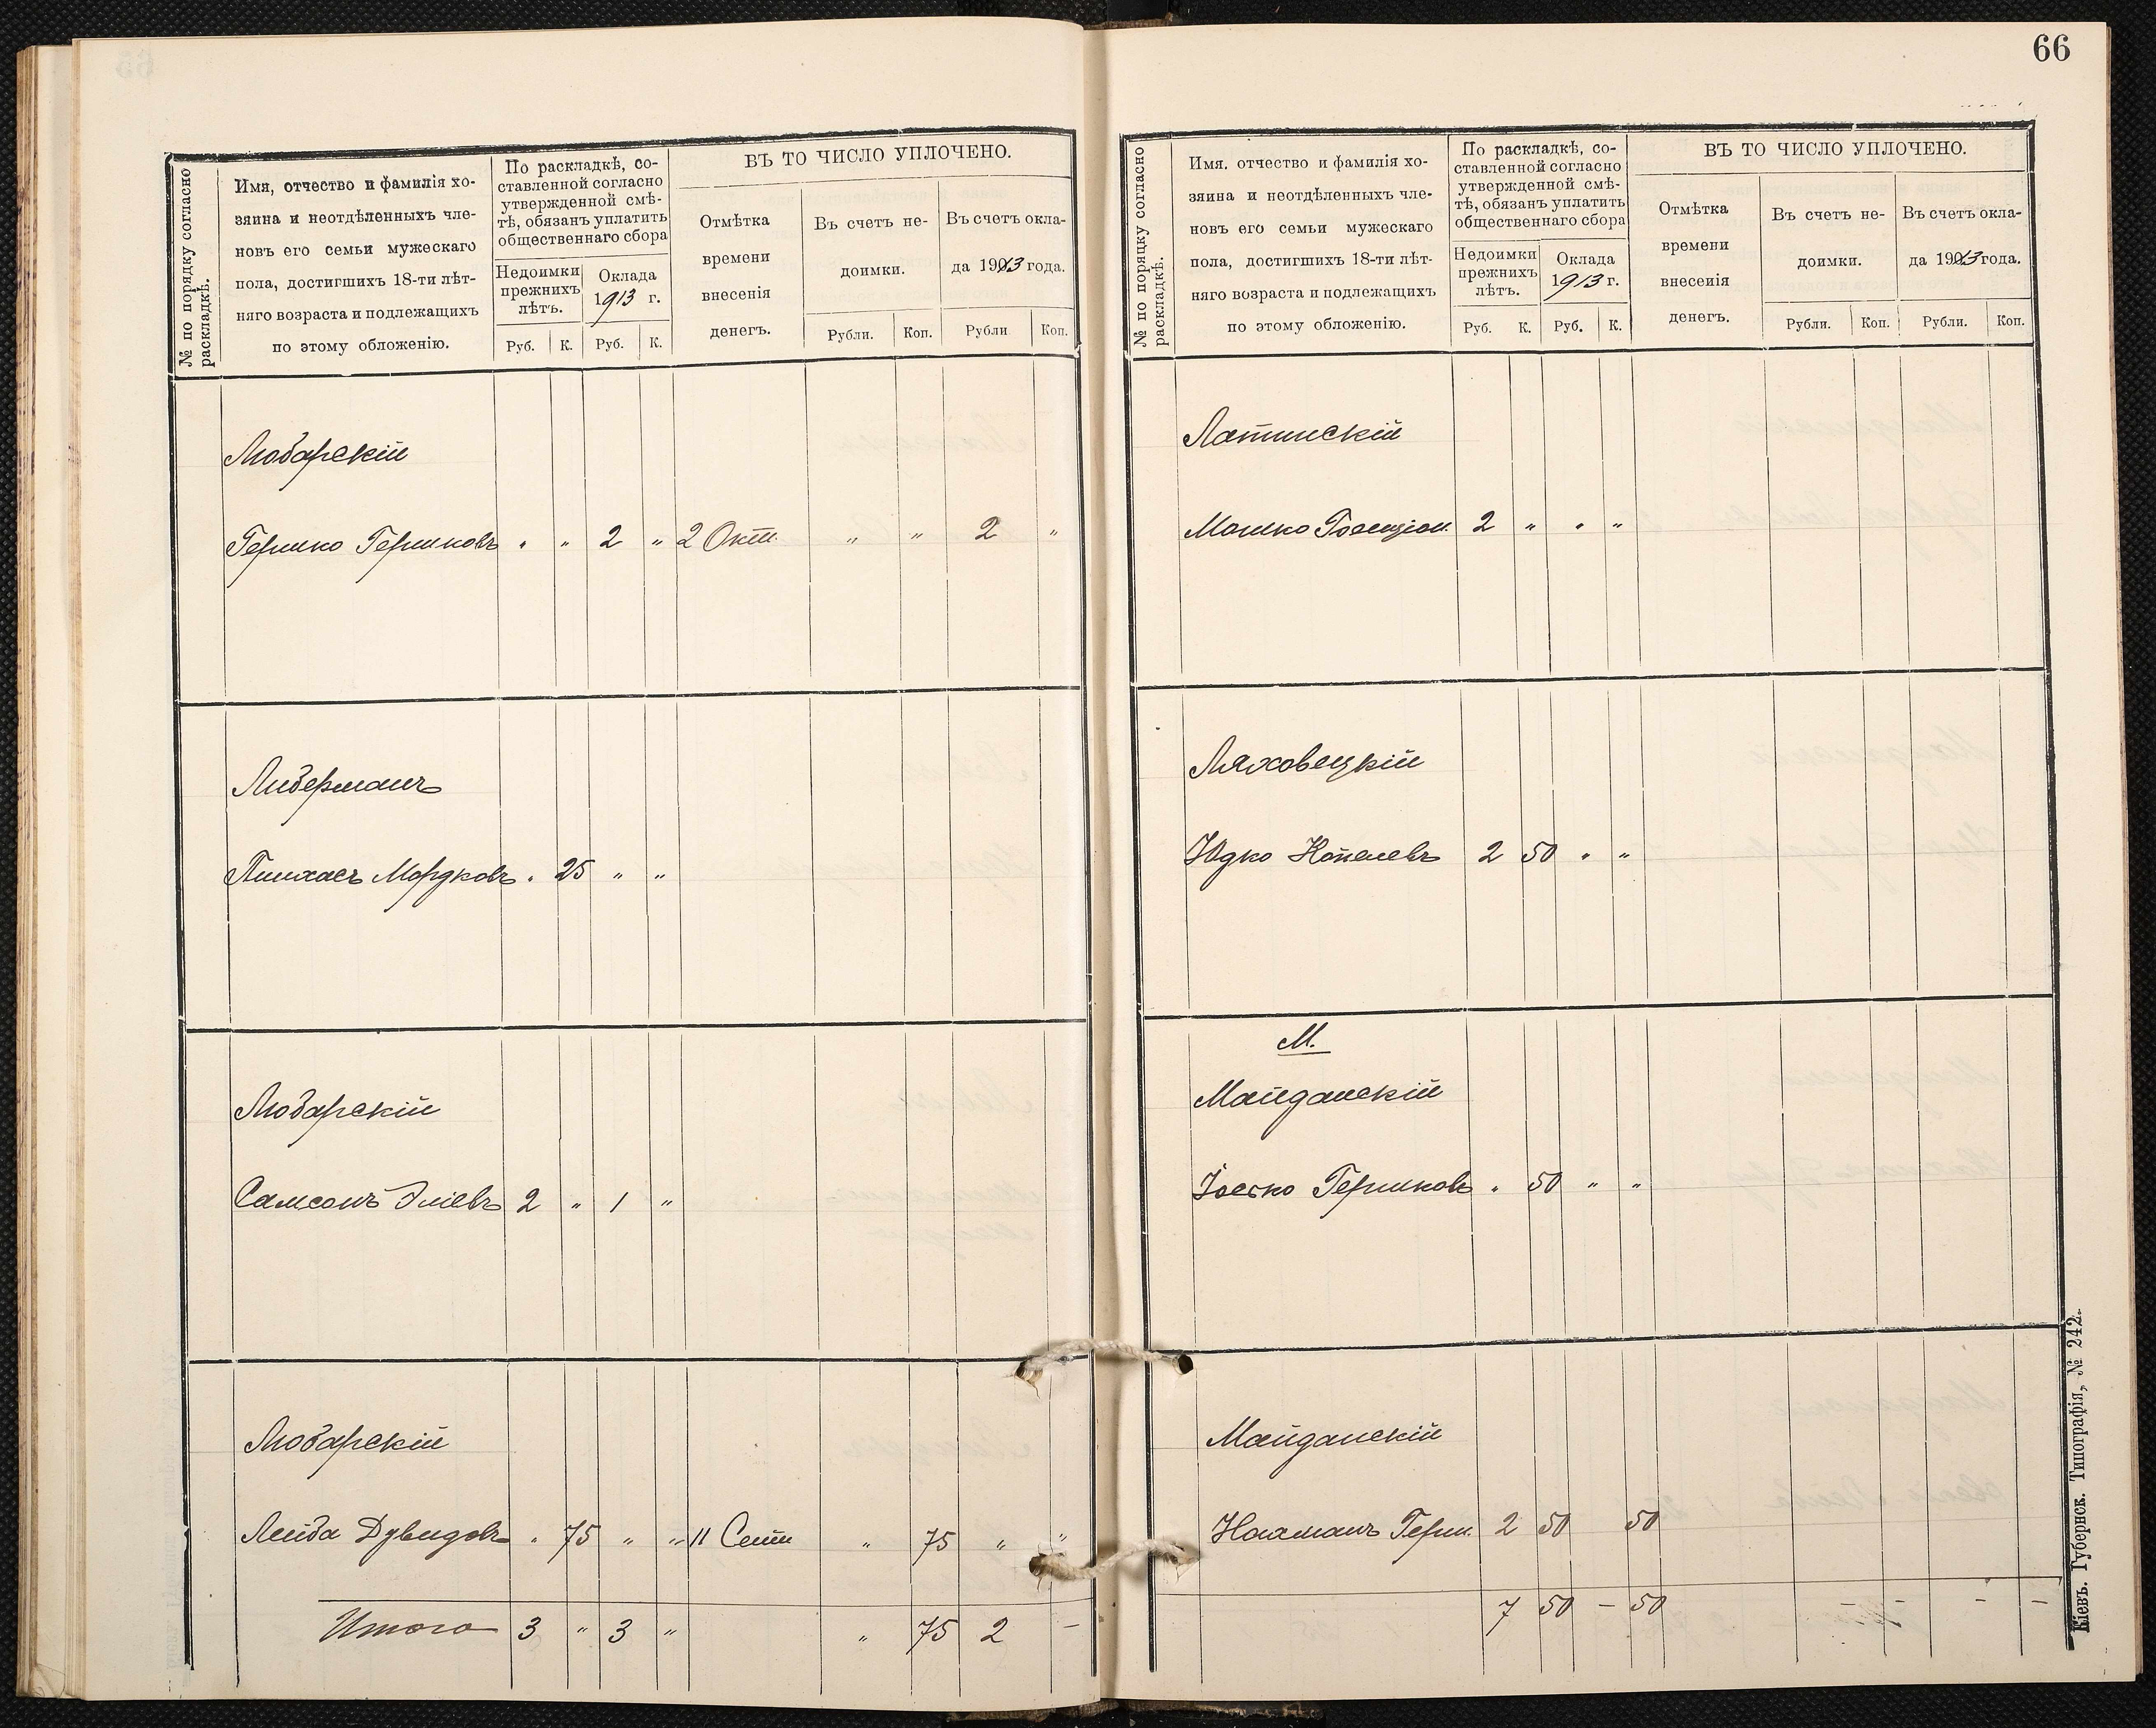 66
№ по порядку согласно
раскладкѣ.
Имя, отчество и фамилія хо-
зяина и неотдѣленныхъ чле-
новъ его семьи мужескаго
пола, достигшихъ 18-ти лѣт-
няго возраста и подлежащихъ
по этому обложенію.
По раскладкѣ, со-
ставленной согласно
утвержденной смѣ-
тѣ, обязанъ уплатить
общественнаго сбора
Недоимки
прежнихъ
лѣтъ.
Оклада
1913 г.
Руб. К. Руб. К.
ВЪ ТО ЧИСЛО УПЛОЧЕНО.
Отмѣтка
времени
внесенія
денегъ.
Въ счетъ не-
доимки.
Въ счетъ окла-
да 1913 года.
Рубли. Коп. Рубли Коп.
Любарскій
Гершко Гершковъ „ „ 2 „ 2 Окт. „ „ 2 „
Либерманъ
Пинхасъ Мордковъ „ 25 „ „
Любарскій
Самсонъ Эліевъ 2 „ 1 „
Любарскій
Лейба Дувидовъ „ 75 „ „ 11 Сент „ 75 „ „
Итого 3 „ 3 „ „ 75 2 –
№ по порядку согласно
раскладкѣ.
Имя, отчество и фамилія хо-
зяина и неотдѣленныхъ чле-
новъ его семьи мужескаго
пола, достигшихъ 18-ти лѣт-
няго возраста и подлежащихъ
по этому обложенію.
По раскладкѣ, со-
ставленной согласно
утвержденной смѣ-
тѣ, обязанъ уплатить
общественнаго сбора
Недоимки
прежнихъ
лѣтъ.
Оклада
1913 г.
Руб. К. Руб. К.
ВЪ ТО ЧИСЛО УПЛОЧЕНО.
Отмѣтка
времени
внесенія
денегъ.
Въ счетъ не-
доимки.
Въ счетъ окла-
да 1913 года.
Рубли. Коп. Рубли. Коп.
Латинскій
Мошко 2 „ „ „
Ляховецкій
Юдко Копелевъ 2 50 „ „
М.
Майданскій
Іоско Гершковъ „ 50 „ „
Майданскій
Нахманъ Герш. 2 50 50
7 50 – 50 – – – –
Кіевъ. Губернск. Типографія, № 242.